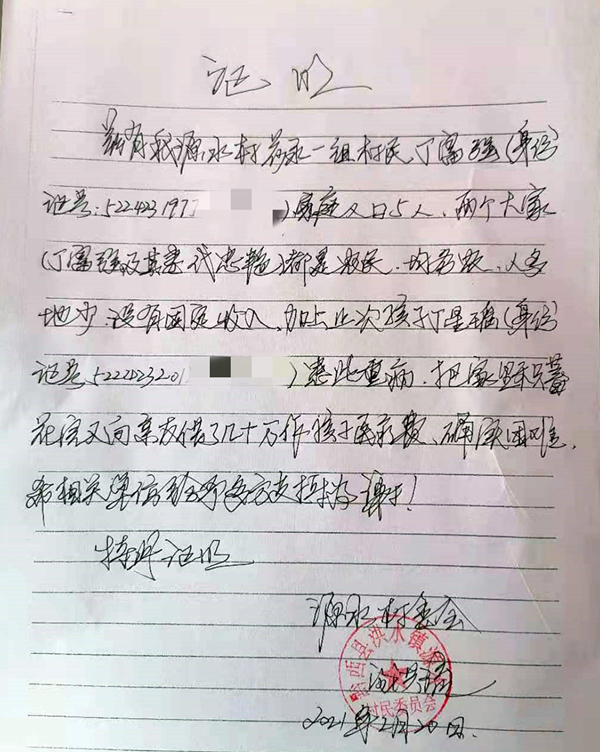 证明
兹有我源水村茶永一组村民丁富强(身份
证号:522423197)家庭人口5人,两个大家
(丁富强及其妻代忠艳)都是农民,均务农,人多
地少,没有固定收入,加上此次孩子丁星瑶(身份
证号5222423201)患此重病,把家里积蓄
花完又向亲友借了几十万作孩子医疗费,确实困难,
希相关单位给予多方支持为谢!
特此证明
源水村委会
黔西县洪水镇源
村民委员会
2021年2月20日